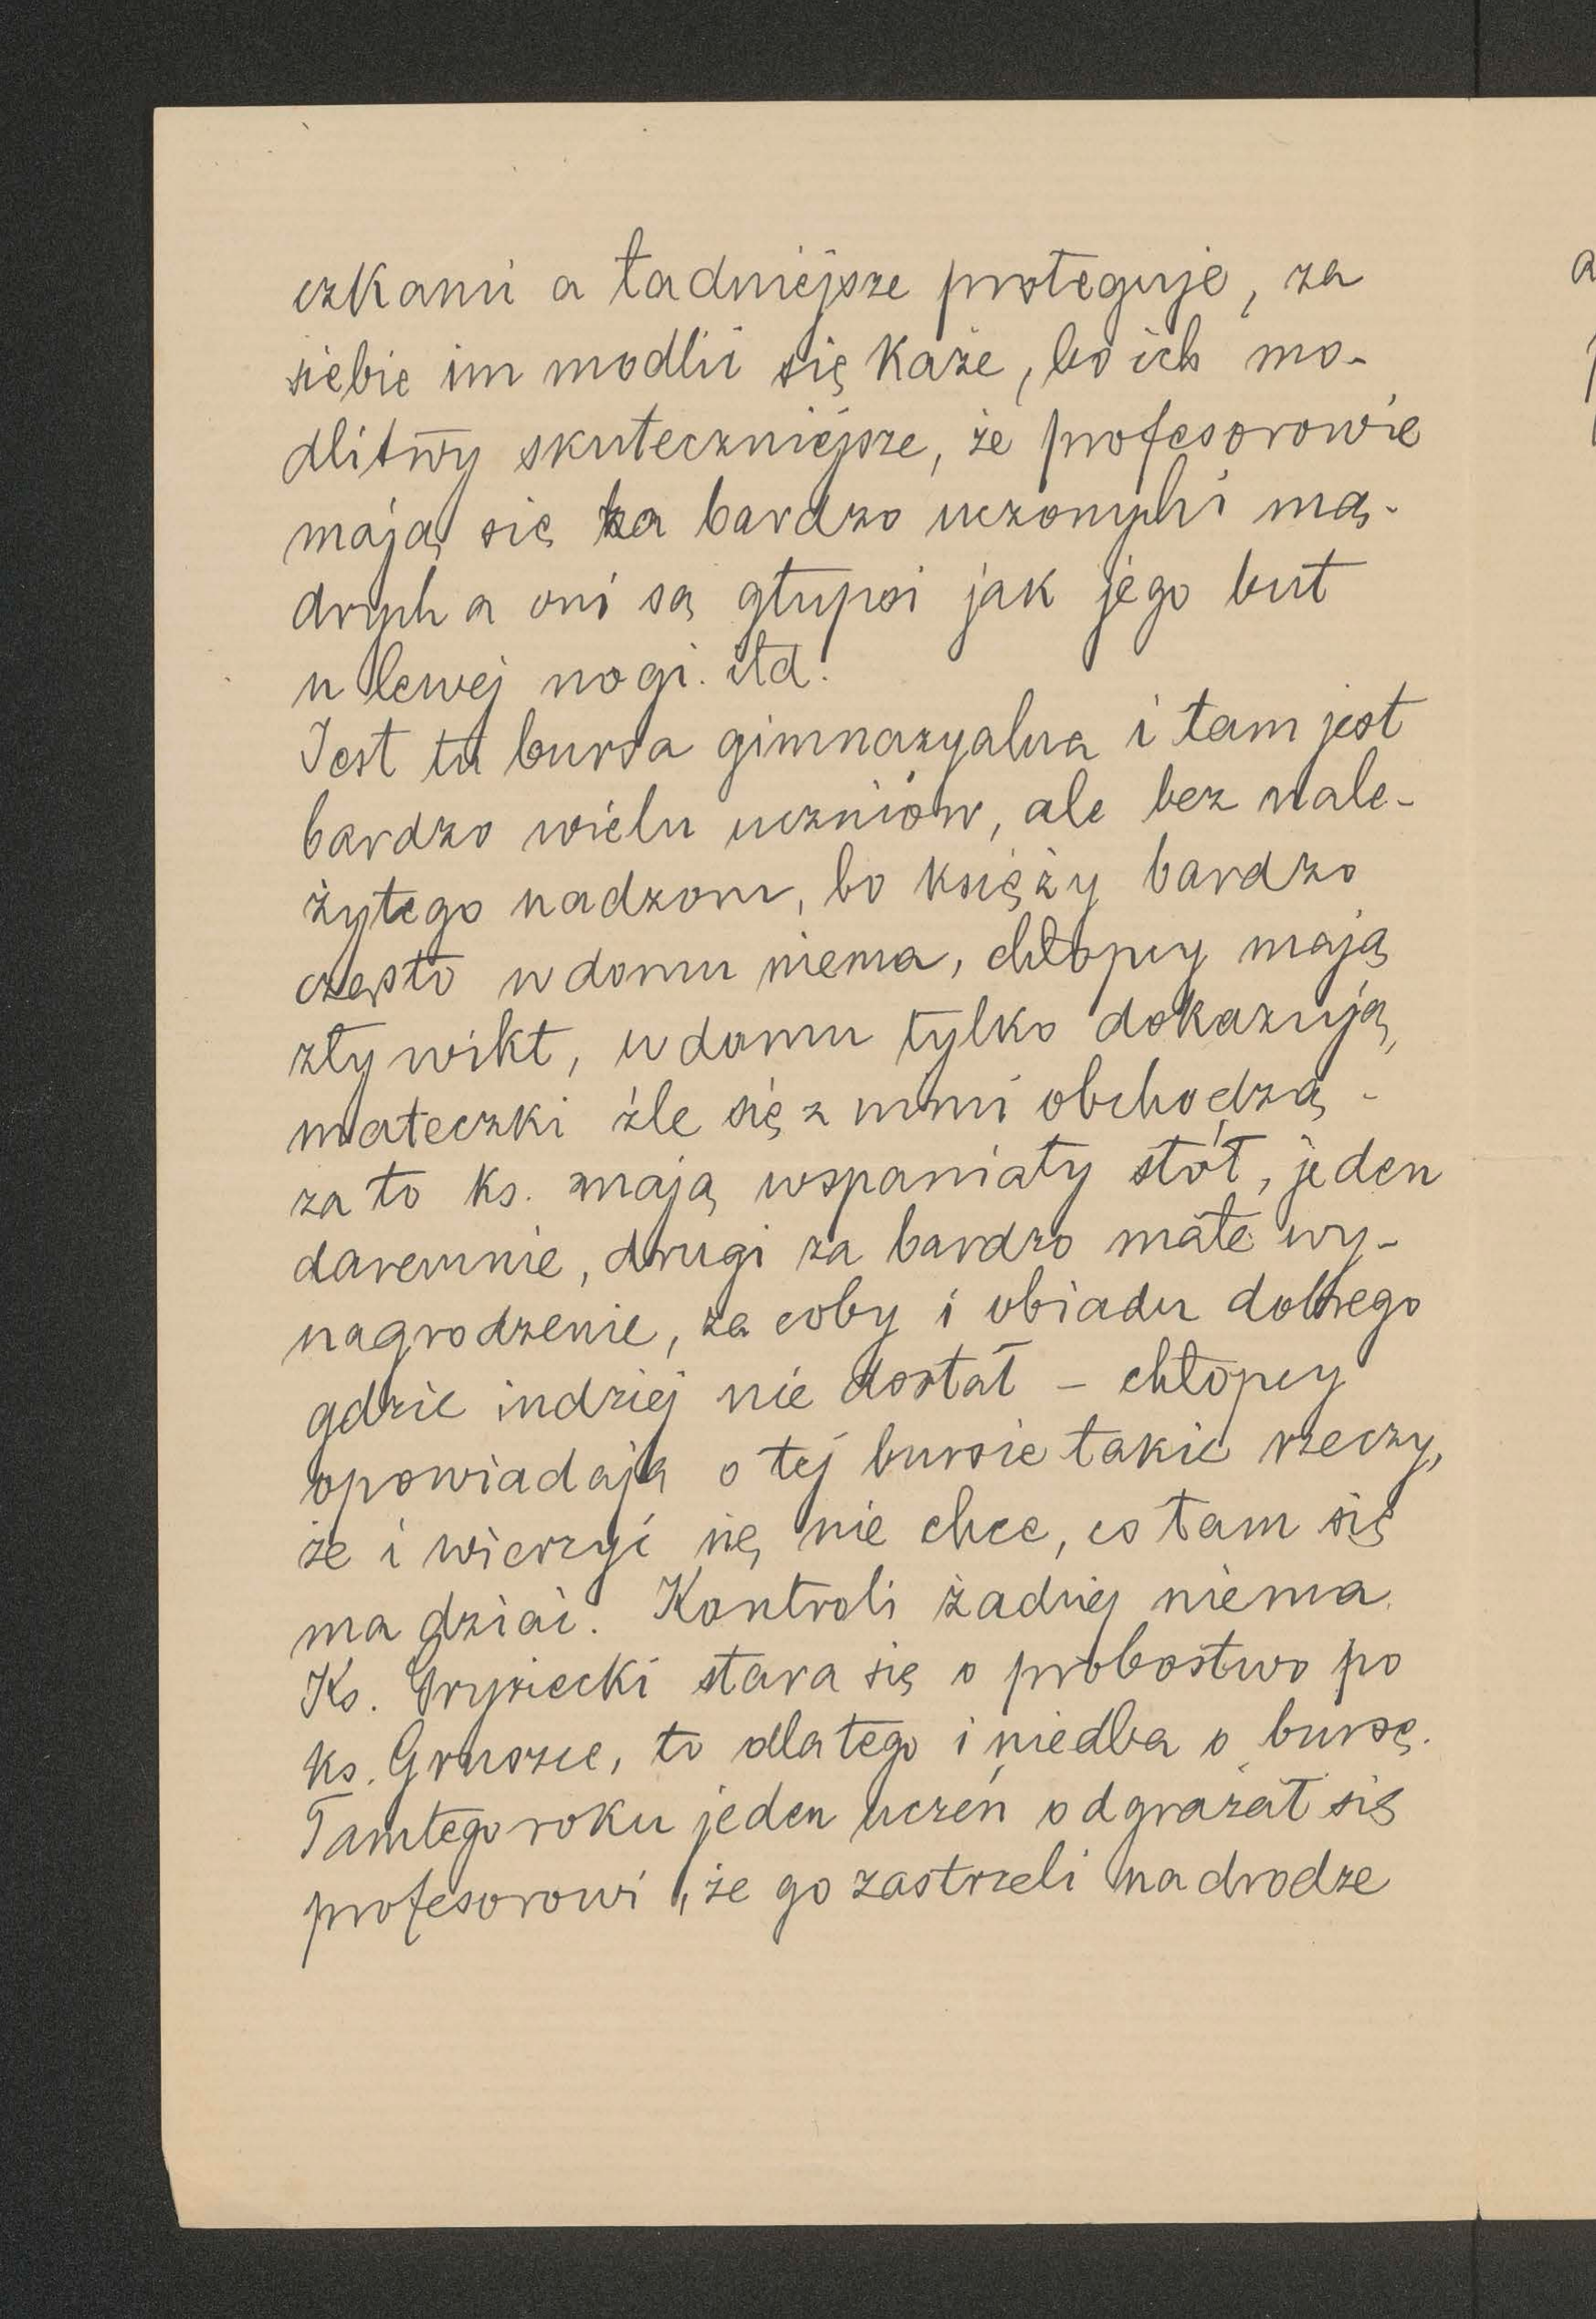 czkami a ładniejsze proteguje, za
siebie im modlić się każe, bo ich mo-
dlitwy skuteczniejsze, że profesorowie
mają się za bardzo uczonych i mą-
drych a oni są głupsi jak jego but
u lewej nogi. itd.
Jest tu bursa gimnazyalna i tam jest
bardzo wielu uczniów, ale bez nale-
żytego nadzoru, bo księży bardzo
często w domu niema, chłopcy mają
zły wikt, w domu tylko dokazują,
mateczki źle się z nimi obchodzą -
za to ks. mają wspaniały stół, jeden
daremnie, drugi za bardzo małe wy-
nagrodzenie, za coby i obiadu dobrego
gdzie indziej nie dostał - chłopcy
opowiadają o tej bursie takie rzeczy,
że i wierzyć się nie chce, co tam się
ma dziać. Kontroli żadnej niema.
Ks. stara się o probostwo po
ks. Gruszce, to dlatego i niedba o bursę.
Tamtego roku jeden uczeń odgrażał się
profesorowi, że go zastrzeli na drodze